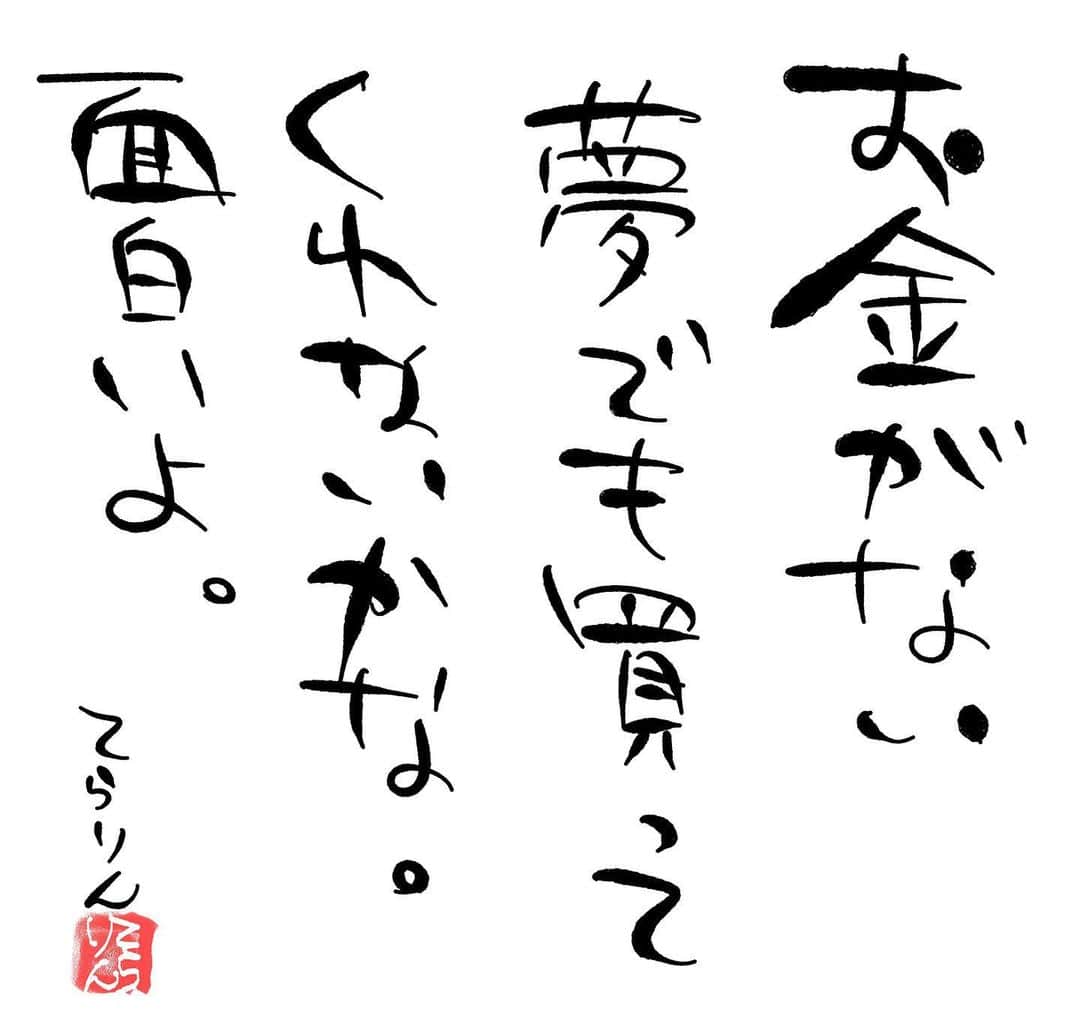 お金がない
夢でも買って
くれないかな。
面白いよ。
てらりん
てらりん